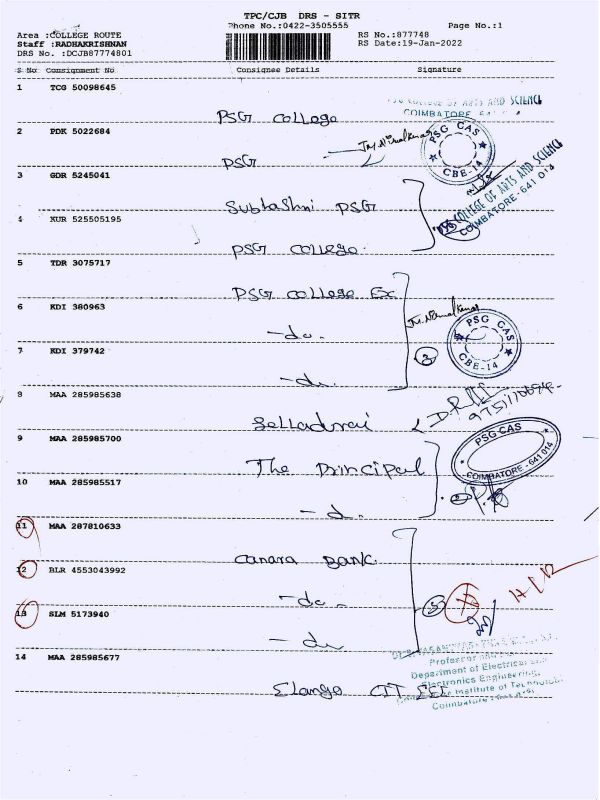 TPC/CJB DRS - SITR
Phone No.:0422-3505555 Page No.:1
Area :COLLEGE ROUTE RS No.:877748
Staff :RADHAKRISHNAN RS Date:19-Jan-2022
DRS No. :DCJB87774801
S No Consignment No Consignee Details Signature
1 TCG 50098645
PSG COLLEGE OF ARTS AND SCIENCE
COIMBATORE
PSG college
2 PDK 5022684
PSG CAS
CBE-14
PSG
3 GDR 5245041
PSG COLLEGE OF ARTS AND SCIENCE
COIMBATORE-641 014
Subhashni PSG
4 KUR 525505195
PSG college
5 TDR 3075717
PSG college
6 KDI 380963
-do.
PSG CAS
CBE-14
7 KDI 379742
-do-
8 MAA 285985638
Selladurai
9 MAA 285985700
PSG CAS
COIMBATORE-641 014
The Principal
10 MAA 285985517
-do.
11 MAA 287810633
Canara Bank
12 BLR 4553043992
-do-
13 SLM 5173940
-do
14 MAA 285985677
Professor
Department of Electrical
Electronics Engineering,
Institute of Technology
Elango CIT EEE